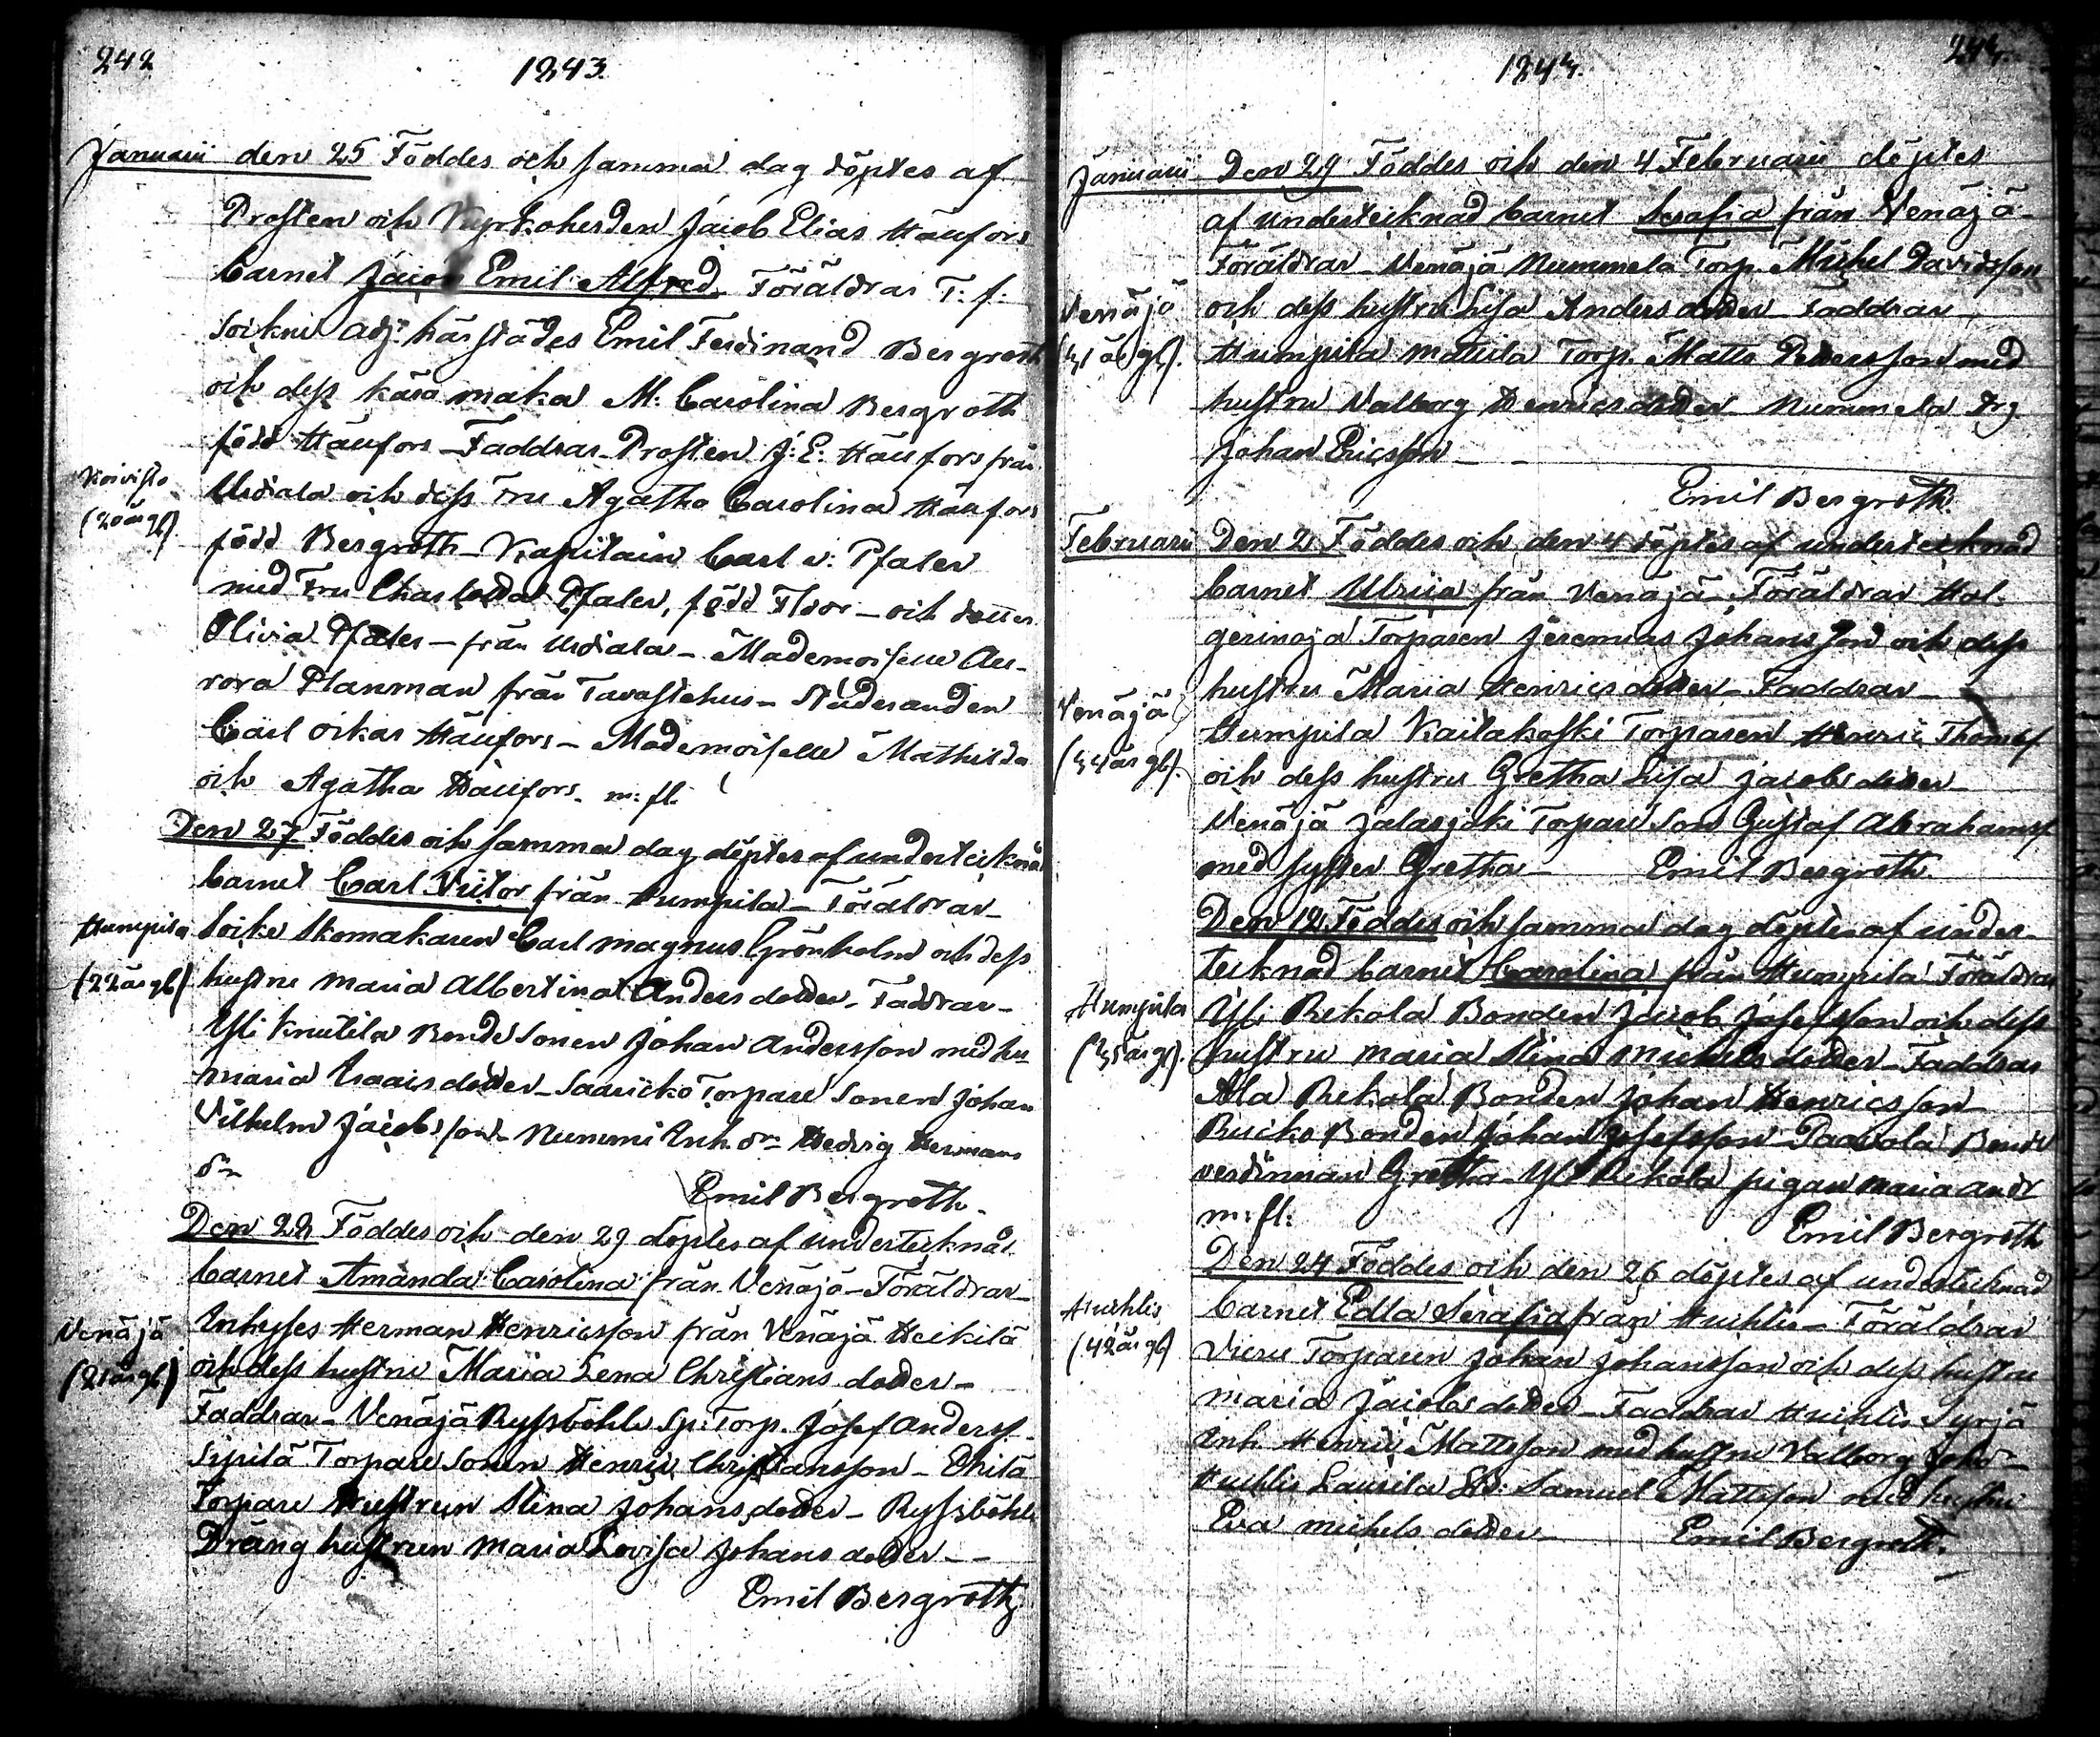 242
1843.
Januarii den 25 Föddes och samma dag döptes af
Prosten och Kyrkoherden Jacob Elias Häufors
barnet Jacob Emil Alfred. Föräldrar T: f:
Sockne Adj: härstädes Emil Ferdinand Bergroth
och dess kära maka M: Carolina Bergroth
född Häufors – Faddrar – Prosten J: E: Häufors från
Koivisto
(20 år gl)
Urdiala och dess Fru Agatha Carolina Häufors
född Bergroth – Kapitain Carl v: Pfaler
med Fru Charlotta Pfaler, född Floor – och dotter
Olivia Pfaler – från Urdiala – Mademoiselle Au-
rora Planman från Tavastehus – Studeranden
Carl Oskar Häufors – Mademoiselle Mathilda
och Agatha Häufors. m: fl.
Den 27 Föddes och samma dag döptes af undertecknad
barnet Carl Victor från Humpila – Föräldrar –
Humpila
(22 år gl)
Socke Skomakaren Carl Magnus Grönholm och dess
hustru Maria Albertina Anders dotter – Faddrar –
Yli Knutila Bonde Sonen Johan Andersson med hu
Maria Isaacs dotter – Torpare Sonen Johan
Vilhelm Jacobsson – Nummi Inh. dr Hedvig Hermans
dr
Emil Bergroth.
Den 28 Föddes och den 29 döptes af undertecknad
barnet Amanda Carolina från Venäjä – Föräldrar –
Venäjä
(21 år gl)
Inhyses Herman Henricsson från Venäjä Heikilä
och dess hustru Maria Lena Christians dotter –
Faddrar – Venäjä Ryssböhle Sp: Torp. Josef Anderss.
Sipilä Torpare Sonen Henric Christiansson –
Torpare Hustrun Stina Johans dotter – Ryssböhle
Dräng hustrun Maria Lovisa Johans dotter – –
Emil Bergroth
244.
1844.
Januarii Den 29 Föddes och den 4 Februarii döptes
af undertecknad barnet Serafia från Venäjä –
Föräldrar – Venäjä Nummela Torp. Michel Davidsson
Venäjä
och dess hustru Lisa Anders dotter – Faddrar –
Humpila Mattila Torp. Matts Pettersson med
hustru Valborg Henrics dotter – Nummela drg
Johan Ericsson – –
Emil Bergroth.
Februarii Den 2 Föddes och den 4 döptes af undertecknad
barnet Ulrica från Venäjä – Föräldrar Hol-
gerinoja Torparen Jeremias Johansson och dess
hustru Maria Henrics dotter – Faddrar –
Venäjä
(34 år gl).
Humpila Kaitakoski Torparen Henric Thomass
och dess hustru Gretha Lisa Jacobs dotter –
Venäjä Jalasjoki Torpare Son Gustaf Abrahamss
med syster Gretha – Emil Bergroth.
Den 12 Föddes och samma dag döptes af under-
tecknad barnet Carolina från Humpila Föräldrar
Humpila
(35 år gl).
Yli Rekola Bonden Jacob Josefsson och dess
hustru Maria Stina Michels dotter – Faddrar
Ala Rekola Bonden Johan Henricsson
Bonden Johan Josefsson – Paavola Bonde
värdinnan Gretha – Yli Rekola pigan Maria Andr
m: fl:
Emil Bergroth
Den 24 Föddes och den 26 döptes af undertecknad
Huhtis
(42 år gl)
barnet Edla Serafia från Huhtis – Föräldrar
Torparen Johan Johansson och dess hustru
Maria Jacobs dotter – Faddrar Huhtis Syrjä
Inh. Henric Mattsson med hustru Valborg Johdr –
Huhtis Laurila Samuel Mattsson med hustru
Eva Michels dotter – Emil Bergroth.